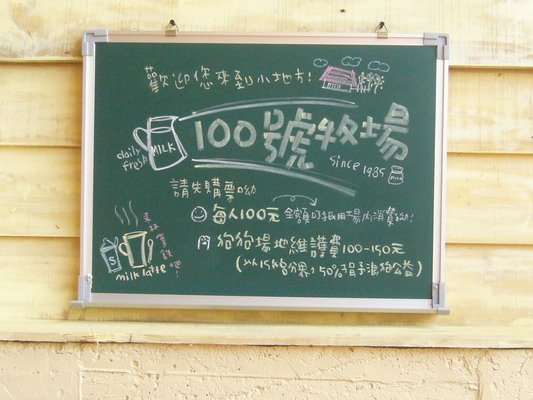 歡迎您來到小地方!
100號牧場
MILK
daily
fresh
since 1935
請先購票呦
每人100元 全額可抵用場內消費呦!
狗狗場地維護費100-150元
(以15kg分界,50%捐予浪狗公益)
來杯拿鐵吧
milk latte